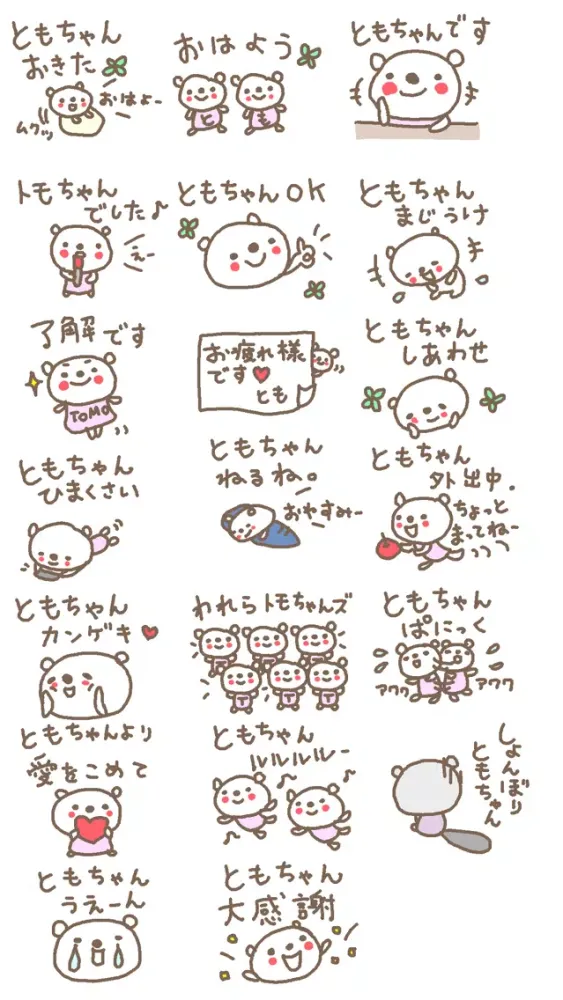 ともちゃん
おきた
おはよー
ムクッ
おはよう
と
も
ともちゃんです
トモちゃん
でした♪
えー
ともちゃんOK
ともちゃん
まじうけ
了解です
TOMO
お疲れ様
です♥
とも
ともちゃん
しあわせ
ともちゃん
ひまくさい
ともちゃん
ねるね。
おやすみー
ともちゃん
外出中.
ちょっと
まってねー
ともちゃん
カンゲキ♥
われらトモちゃんズ
T
T
T
ともちゃん
ぱにっく
アワワ
アワワ
ともちゃんより
愛をこめて
ともちゃん
ルルルルー
しょんぼり
ともちゃん
ともちゃん
うえーん
ともちゃん
大感謝